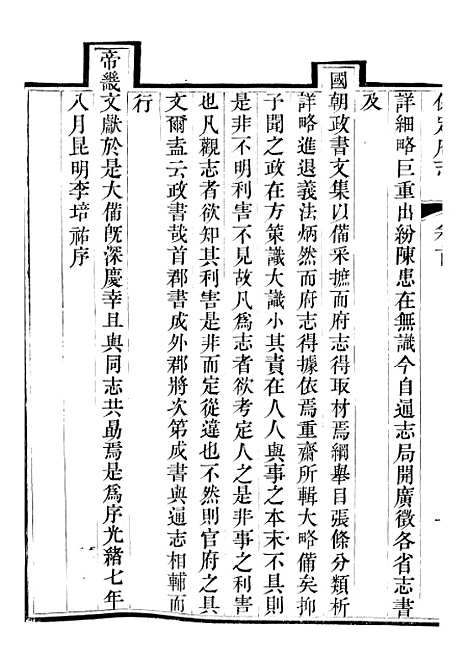 保定府志 卷首
詳細略巨重出紛陳患在無識今自通志局開廣徵各省志書
及
國朝政書文集以備采摭而府志得取材焉綱舉目張條分類析
詳略進退義法炳然而府志得據依焉重齋所輯大略備矣抑
子聞之政在方策識大識小其責在人人與事之本末不具則
是非不明利害不見故凡為志者欲考定人之是非事之利害
也凡觀志者欲知其利害是非而定從違也不然則官府之具
文爾盍云政書哉首郡書成外郡將次第成書與通志相輔而
行
帝畿文獻於是大備旣深慶幸且與同志共勗焉是為序光緒七年
八月昆明李培祜序